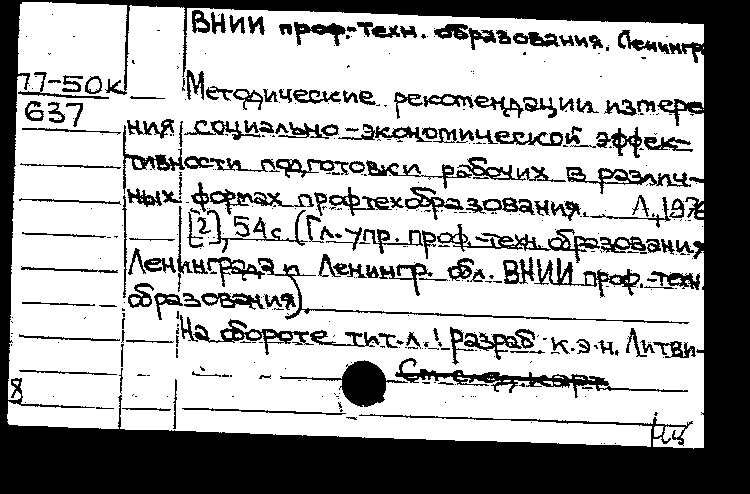 ВНИИ проф.-техн. образования. Ленингр
77-50к
637
Методические рекомендации измере
ния социально-экономической эффек-
тивности подготовки рабочих в различ-
ных формах профтехобразования. Л., 1976
[2], 54 с (Гл. упр. проф.-техн. образования
Ленинграда и Ленингр. обл. ВНИИ проф.-техн.
образования).
На обороте тит. л.: Разраб. к.э.н. Литви-
См. след. карт.
8